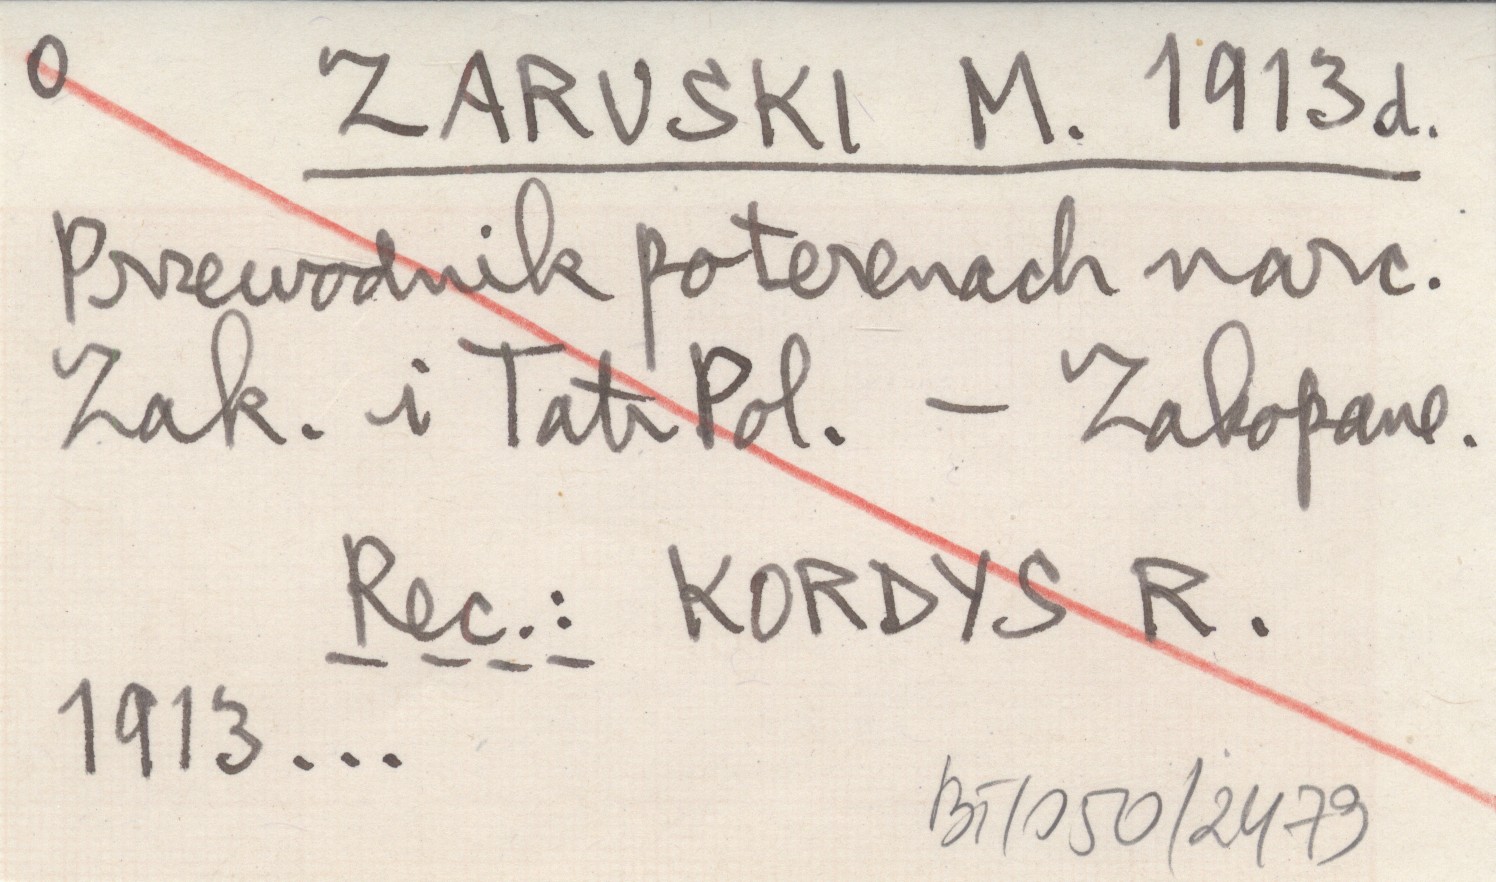 0 ZARUSKI M. 1913d.
Przewodnik po terenach narc.
Zak. i Tatr Pol. – Zakopane.
Rec.: KORDYS R.
1913...
BT/050/2479